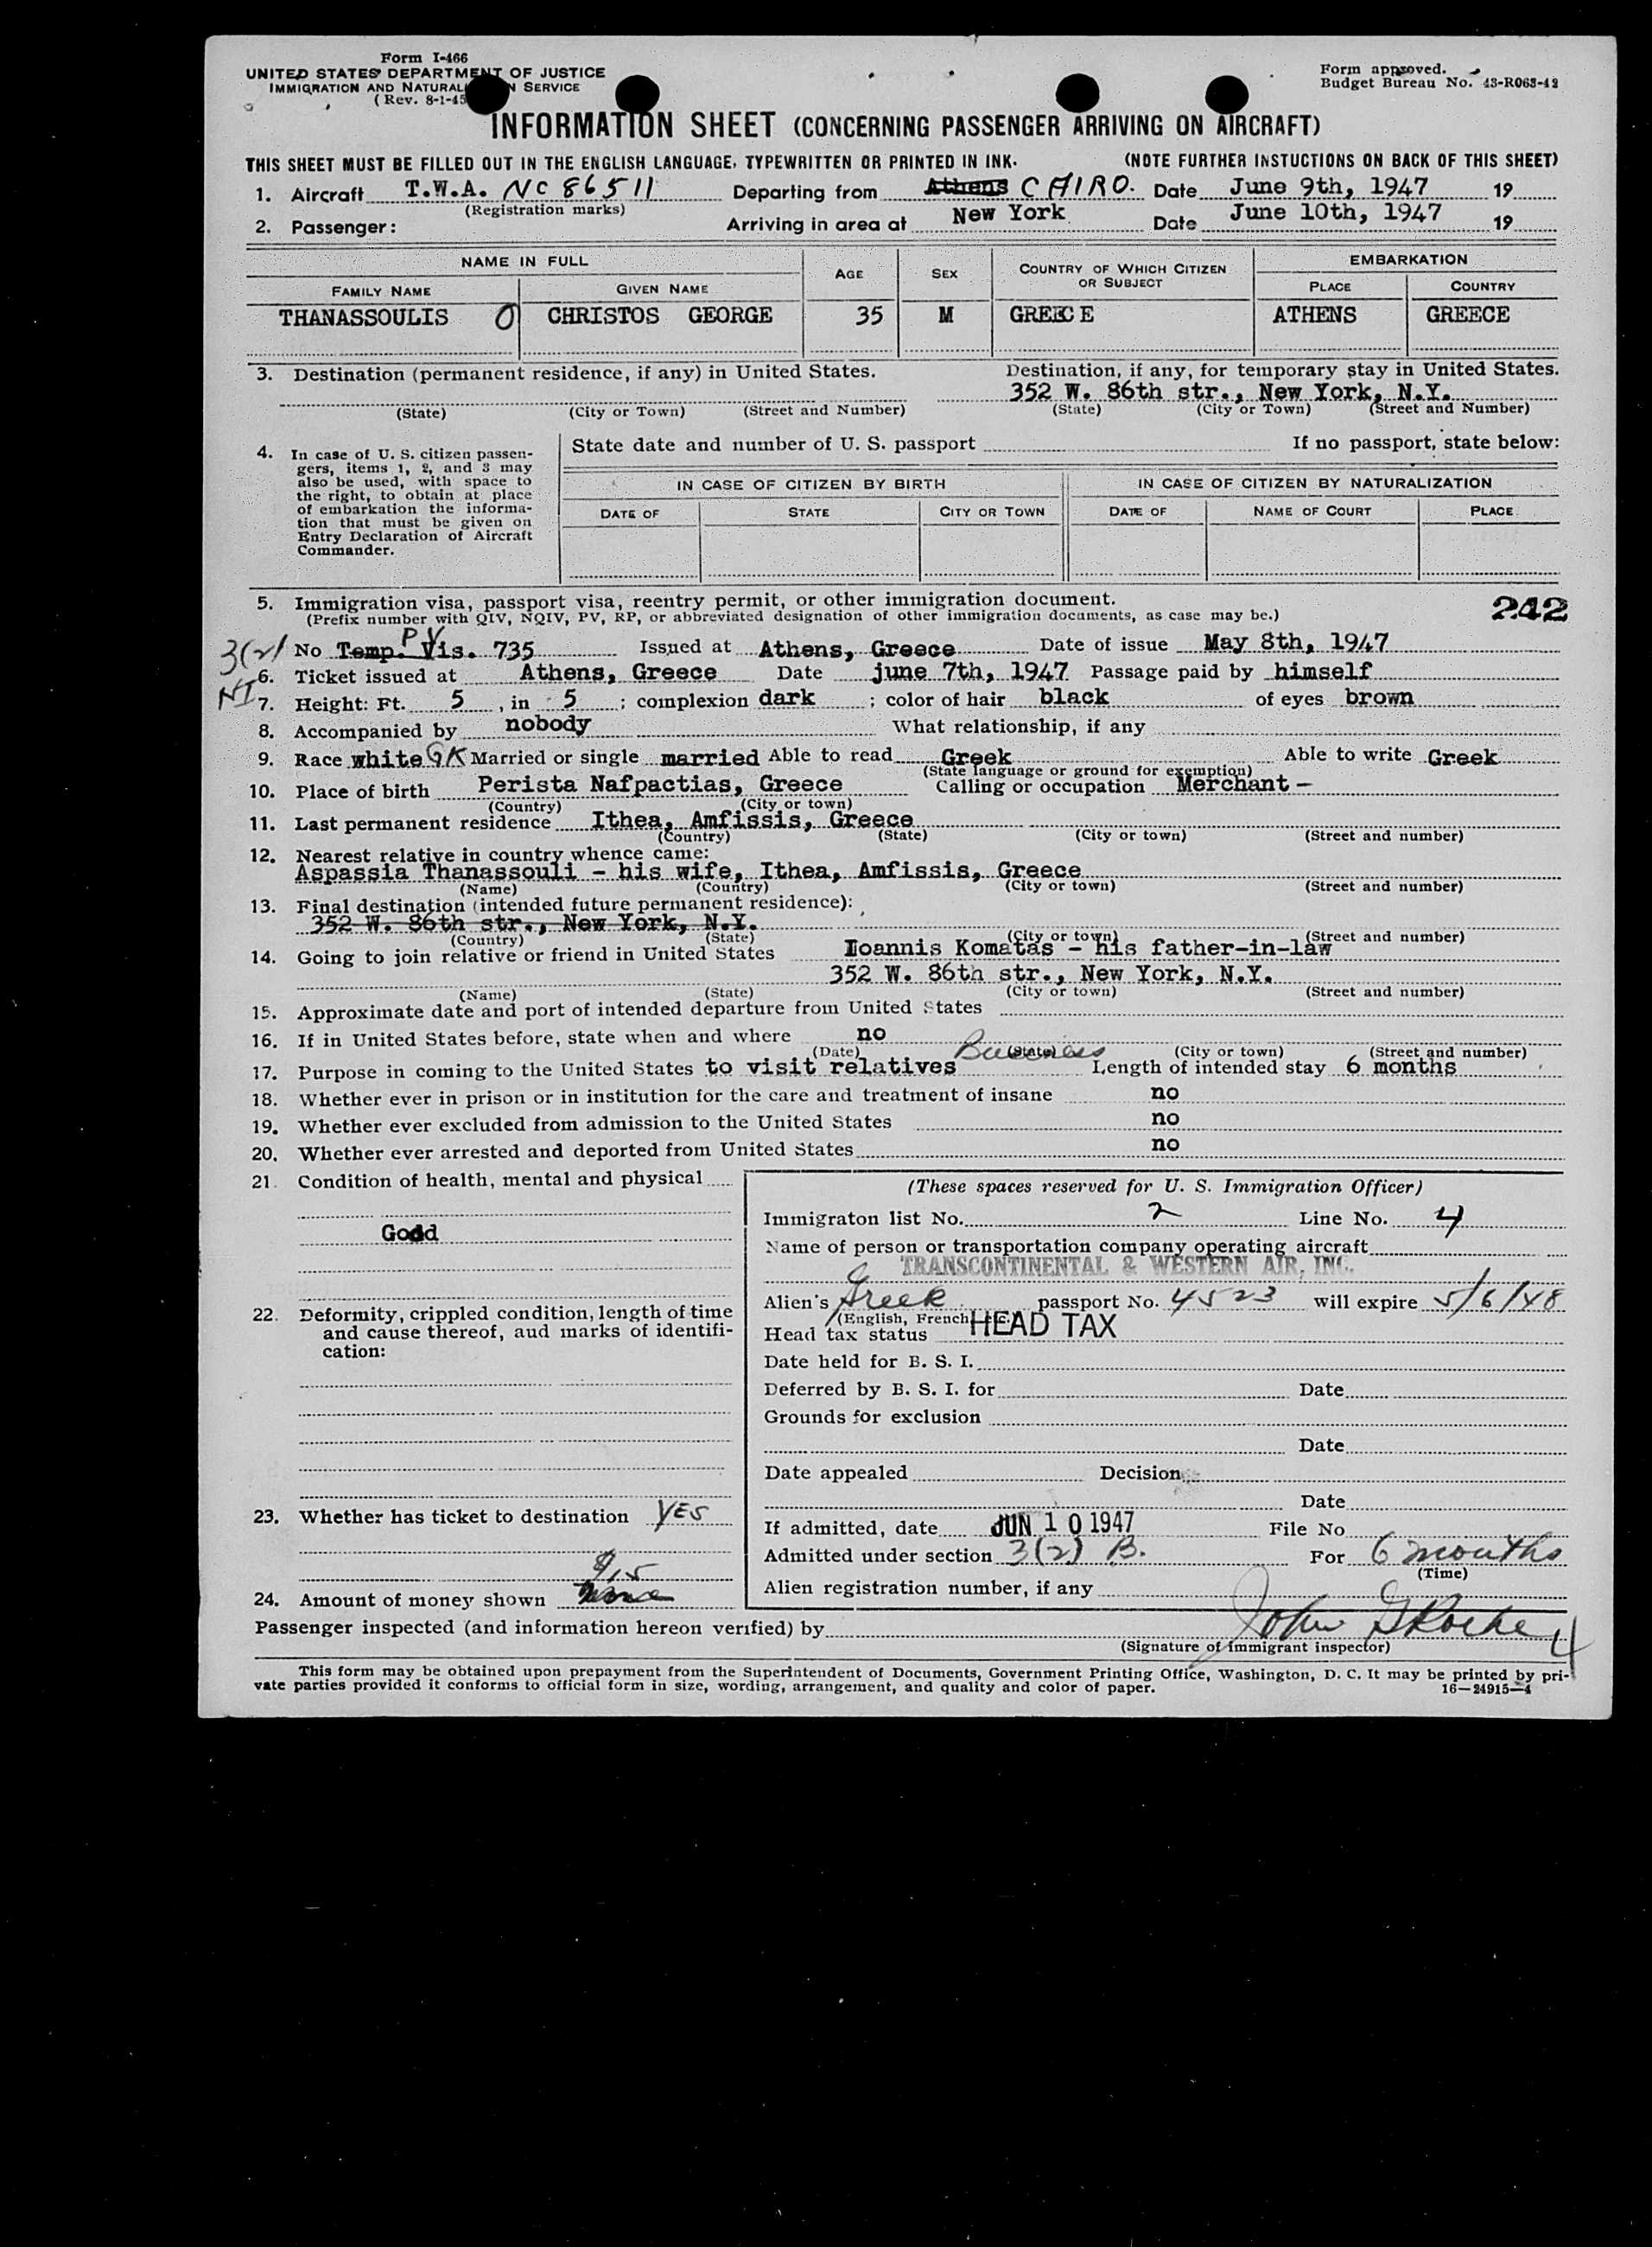 Form I-466
UNITED STATES DEPARTMENT OF JUSTICE
IMMIGRATION AND NATURAL N SERVICE
(Rev. 8-1-45
Form approved.
Budget Bureau No. 43-R063-42
INFORMATION SHEET (CONCERNING PASSENGER ARRIVING ON AIRCRAFT)
THIS SHEET MUST BE FILLED OUT IN THE ENGLISH LANGUAGE, TYPEWRITTEN OR PRINTED IN INK. (NOTE FURTHER INSTUCTIONS ON BACK OF THIS SHEET)
1. Aircraft T.W.A. NC 86511 Departing from Athens CAIRO. Date June 9th, 1947 19
(Registration marks)
2. Passenger: Arriving in area at New York Date June 10th, 1947 19
NAME IN FULL AGE SEX COUNTRY OF WHICH CITIZEN OR SUBJECT EMBARKATION
FAMILY NAME GIVEN NAME PLACE COUNTRY
THANASSOULIS O CHRISTOS GEORGE 35 M GREECE ATHENS GREECE
3. Destination (permanent residence, if any) in United States. Destination, if any, for temporary stay in United States.
352 W. 86th str., New York, N.Y.
(State) (City or Town) (Street and Number) (State) (City or Town) (Street and Number)
4. In case of U. S. citizen passengers, items 1, 2, and 3 may also be used, with space to the right, to obtain at place of embarkation the information that must be given on Entry Declaration of Aircraft Commander.
State date and number of U. S. passport If no passport, state below:
IN CASE OF CITIZEN BY BIRTH IN CASE OF CITIZEN BY NATURALIZATION
DATE OF STATE CITY OR TOWN DATE OF NAME OF COURT PLACE
5. Immigration visa, passport visa, reentry permit, or other immigration document. 242
(Prefix number with QIV, NQIV, PV, RP, or abbreviated designation of other immigration documents, as case may be.)
3(2) PV
No Temp. Vis. 735 Issued at Athens, Greece Date of issue May 8th, 1947
6. Ticket issued at Athens, Greece Date june 7th, 1947 Passage paid by himself
NI
7. Height: Ft. 5, in 5; complexion dark; color of hair black of eyes brown
8. Accompanied by nobody What relationship, if any
9. Race white GK Married or single married Able to read Greek Able to write Greek
(State language or ground for exemption)
10. Place of birth Perista Nafpactias, Greece Calling or occupation Merchant -
(Country) (City or town)
11. Last permanent residence Ithea, Amfissis, Greece
(Country) (State) (City or town) (Street and number)
12. Nearest relative in country whence came:
Aspassia Thanassouli - his wife, Ithea, Amfissis, Greece
(Name) (Country) (City or town) (Street and number)
13. Final destination (intended future permanent residence):
352 W. 86th str., New York, N.Y.
(Country) (State) (City or town) (Street and number)
14. Going to join relative or friend in United States Ioannis Komatas - his father-in-law
352 W. 86th str., New York, N.Y.
(Name) (State) (City or town) (Street and number)
15. Approximate date and port of intended departure from United States
16. If in United States before, state when and where no
(Date) (State) (City or town) (Street and number)
17. Purpose in coming to the United States to visit relatives Business Length of intended stay 6 months
18. Whether ever in prison or in institution for the care and treatment of insane no
19. Whether ever excluded from admission to the United States no
20. Whether ever arrested and deported from United States no
21. Condition of health, mental and physical
Good
22. Deformity, crippled condition, length of time and cause thereof, aud marks of identification:
23. Whether has ticket to destination YES
$15
24. Amount of money shown None
(These spaces reserved for U. S. Immigration Officer)
Immigraton list No. 2 Line No. 4
Name of person or transportation company operating aircraft
TRANSCONTINENTAL & WESTERN AIR, INC.
Alien's Greek passport No. 4523 will expire 5/6/48
(English, French,
Head tax status HEAD TAX
Date held for B. S. I.
Deferred by B. S. I. for Date
Grounds for exclusion
Date
Date appealed Decision
Date
If admitted, date JUN 10 1947 File No
Admitted under section 3(2) B. For 6 months
(Time)
Alien registration number, if any
Passenger inspected (and information hereon verified) by John G Roche 4
(Signature of immigrant inspector)
This form may be obtained upon prepayment from the Superintendent of Documents, Government Printing Office, Washington, D. C. It may be printed by pri-
vate parties provided it conforms to official form in size, wording, arrangement, and quality and color of paper. 16—24915—4